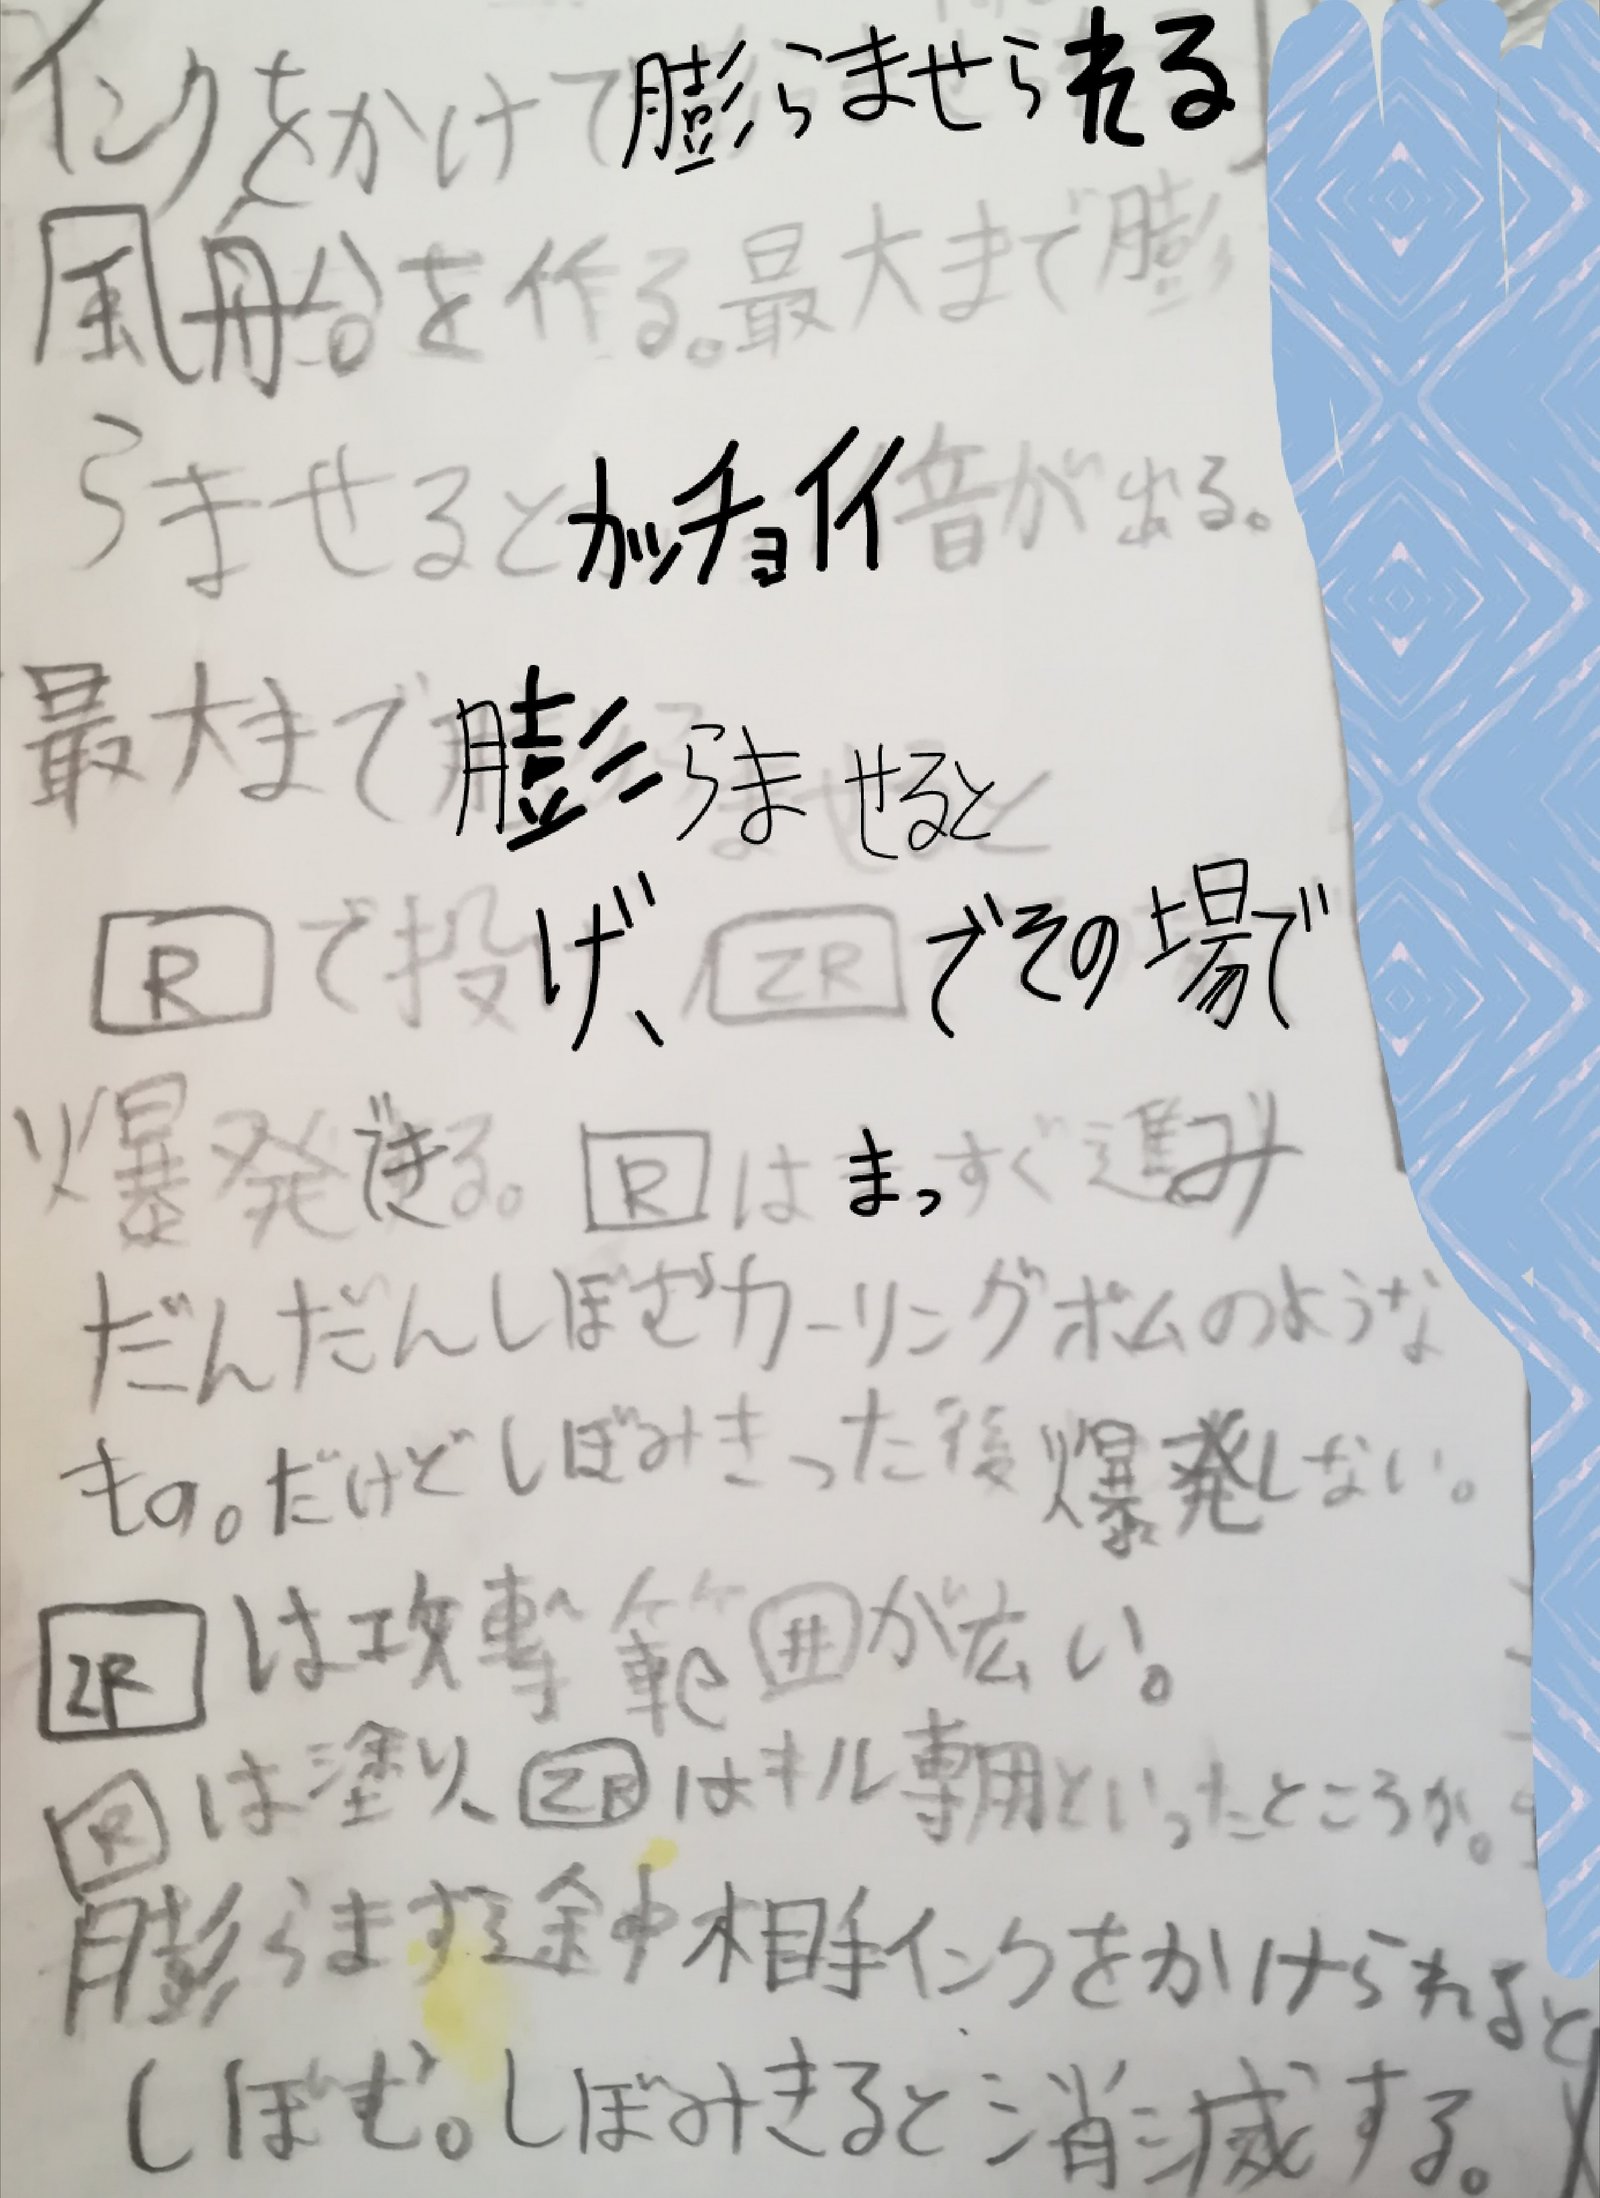 インクをかけて膨らませられる
風船を作る。最大まで膨
らませるとカッチョイイ音が出る。
最大まで膨らませると
Rで投げ、ZRでその場で
爆発できる。Rはまっすぐ進み
だんだんしぼむカーリングボムのような
もの。だけどしぼみきった後爆発しない。
ZRは攻撃範囲が広い。
Rは塗り、ZRはキル専用といったところか。
膨らます途中相手インクをかけられると
しぼむ。しぼみきると消滅する。